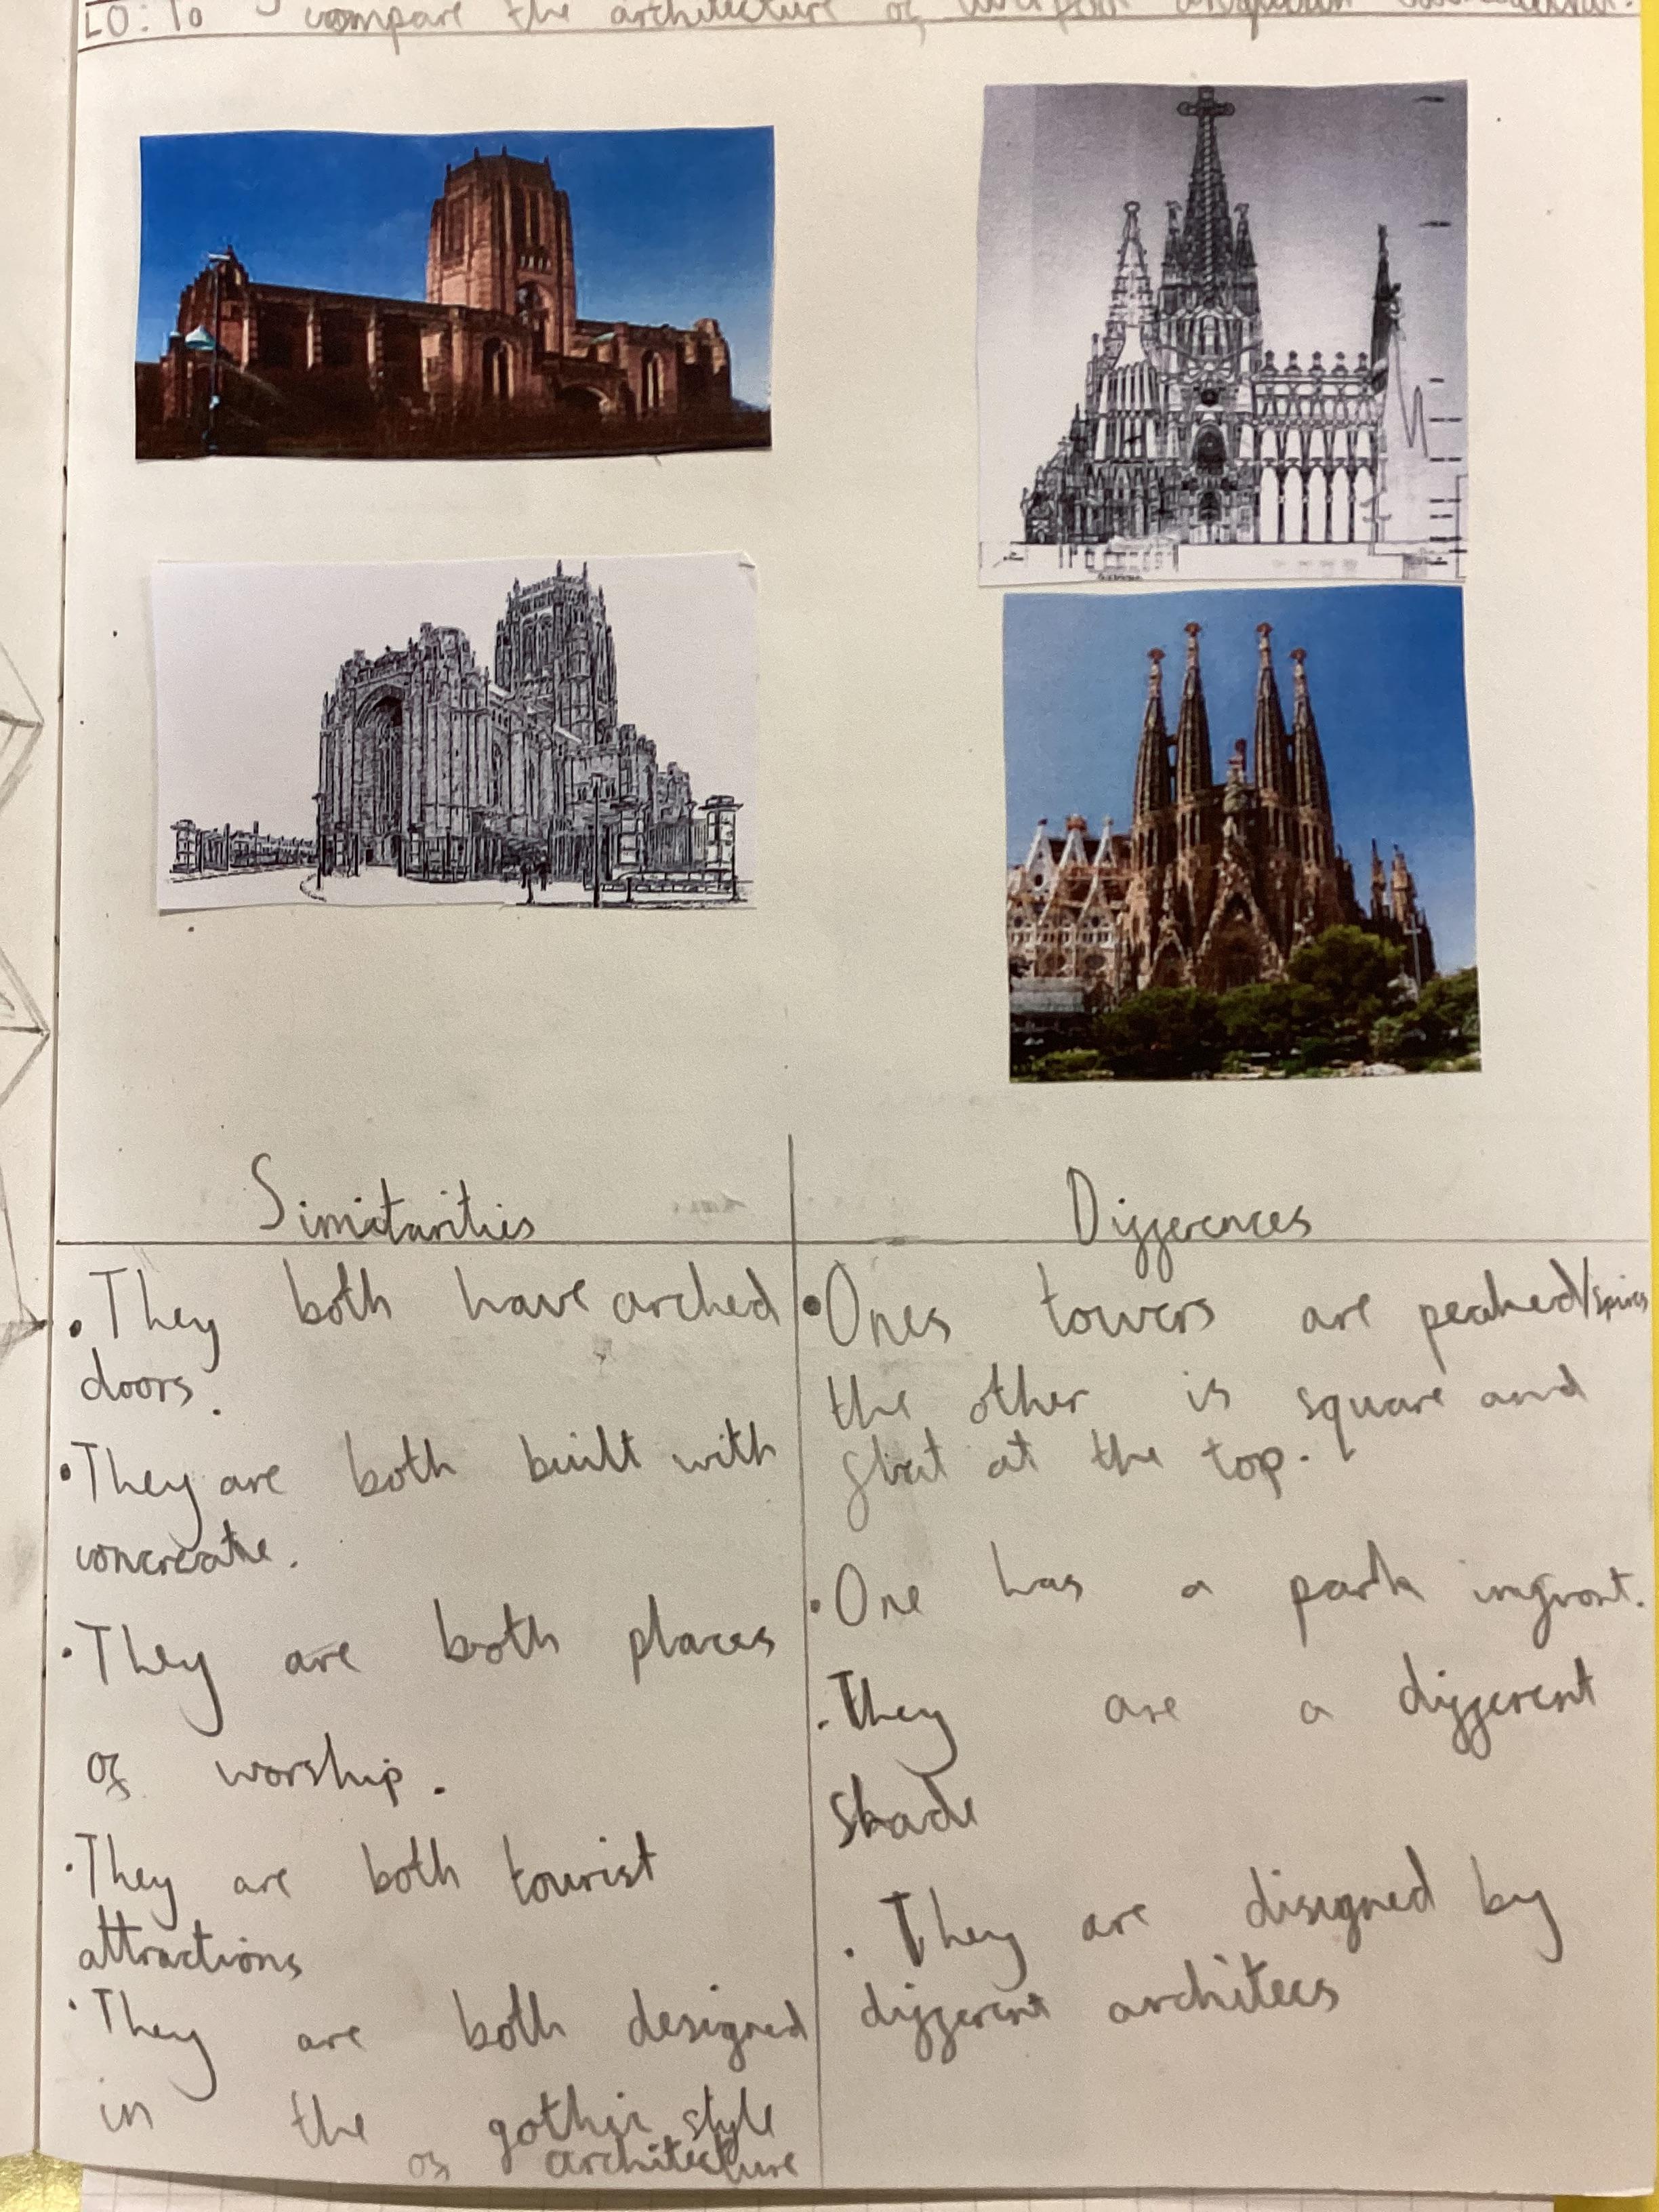 LO: To compare the architecture of
Similarities
• They both have arched
doors.
• They are both built with
concreate.
• They are both places
of worship.
• They are both tourist
attractions
• They are both designed
in the gothic style
of architecture
Differences
• Ones towers are peaked/spires
the other is square and
flat at the top.
• One has a park infront.
• They are a different
shade
• They are disigned by
different architecs